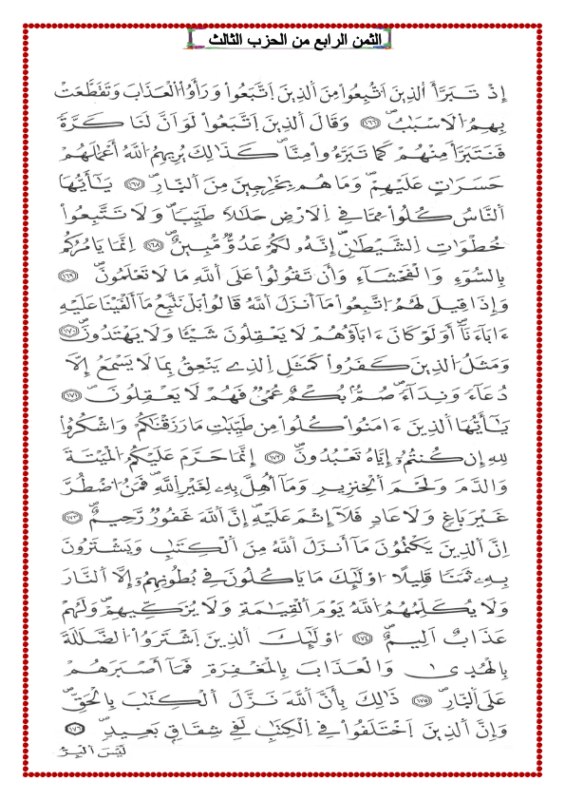 الثمن الرابع من الحزب الثالث
إِذْ تَبَرَّأَ اَلذِينَ اَتُّبِعُواْ مِنَ اَلذِينَ اَتَّبَعُواْ وَرَأَوُاْ الْعَذَابَ وَتَقَطَّعَتْ
بِهِمُ اُلَاسْبَٰبُ ١٦٦ وَقَالَ اَلذِينَ اَتَّبَعُواْ لَوَ اَنَّ لَنَا كَرَّةً
فَنَتَبَرَّأَ مِنْهُمْ كَمَا تَبَرَّءُواْ مِنَّا كَذَٰلِكَ يُرِيهِمُ اُللَّهُ أَعْمَٰلَهُمْ
حَسَرَٰتٍ عَلَيْهِمْ وَمَا هُم بِخَٰرِجِينَ مَنَ اَلنّ۪ارِ ١٦٧ يَٰٓأَيُّهَا
اَلنَّاسُ كُلُواْ مِمَّا فِے اِلَارْضِ حَلَٰلاٗ طَيِّباٗ وَلَا تَتَّبِعُواْ
خُطْوَٰتِ اِلشَّيْطَٰنِ إِنَّهُۥ لَكُمْ عَدُوّٞ مُّبِينٌ ١٦٨ اِنَّمَا يَامُرُكُم
بِالسُّوٓءِ وَالْفَحْشَآءِ وَأَن تَقُولُواْ عَلَى اَللَّهِ مَا لَا تَعْلَمُونَ ١٦٩
وَإِذَا قِيلَ لَهُمُ اُتَّبِعُواْ مَآ أَنزَلَ اَللَّهُ قَالُواْ بَلْ نَتَّبِعُ مَآ أَلْفَيْنَا عَلَيْهِ
ءَابَآءَنَآ أَوَلَوْ كَانَ ءَابَآؤُهُمْ لَا يَعْقِلُونَ شَيْـٔاٗ وَلَا يَهْتَدُونَ ١٧٠
وَمَثَلُ اُلذِينَ كَفَرُواْ كَمَثَلِ اِلذِے يَنْعِقُ بِمَا لَا يَسْمَعُ إِلَّا
دُعَآءٗ وَنِدَآءٗ صُمُّۢ بُكْمٌ عُمْيٞ فَهُمْ لَا يَعْقِلُونَ ١٧١
يَٰٓأَيُّهَا اَلذِينَ ءَامَنُواْ كُلُواْ مِن طَيِّبَٰتِ مَا رَزَقْنَٰكُمْ وَاشْكُرُواْ
لِلهِ إِن كُنتُمُۥٓ إِيَّاهُ تَعْبُدُونَ ١٧٢ إِنَّمَا حَرَّمَ عَلَيْكُمُ اُلْمَيْتَةَ
وَالدَّمَ وَلَحْمَ اَلْخِنزِيرِ وَمَآ أُهِلَّ بِهِۦ لِغَيْرِ اِللَّهِ فَمَنُ اُضْطُرَّ
غَيْرَ بَاغٖ وَلَا عَادٖ فَلَآ إِثْمَ عَلَيْهِ إِنَّ اَللَّهَ غَفُورٞ رَّحِيمٌ ١٧٣
اِنَّ اَلذِينَ يَكْتُمُونَ مَآ أَنزَلَ اَللَّهُ مِنَ اَلْكِتَٰبِ وَيَشْتَرُونَ
بِهِۦ ثَمَناٗ قَلِيلاً ا۟وْلَٰٓئِكَ مَا يَاكُلُونَ فِے بُطُونِهِمُۥٓ إِلَّا اَلنَّارَ
وَلَا يُكَلِّمُهُمُ اُللَّهُ يَوْمَ اَلْقِيَٰمَةِ وَلَا يُزَكِّيهِمْ وَلَهُمْ
عَذَابٌ اَلِيمٌ ١٧٤ ا۟وْلَٰٓئِكَ اَلذِينَ اَشْتَرَوُاْ الضَّلَٰلَةَ
بِالْهُد۪ىٰ وَالْعَذَابَ بِالْمَغْفِرَةِ فَمَآ أَصْبَرَهُمْ
عَلَى اَلنّ۪ارِ ١٧٥ ذَٰلِكَ بِأَنَّ اَللَّهَ نَزَّلَ اَلْكِتَٰبَ بِالْحَقِّ
وَإِنَّ اَلذِينَ اَخْتَلَفُواْ فِے اِلْكِتَٰبِ لَفِے شِقَاقِۢ بَعِيدٖ ١٧٦
لَّيْسَ اَلْبِرُّ